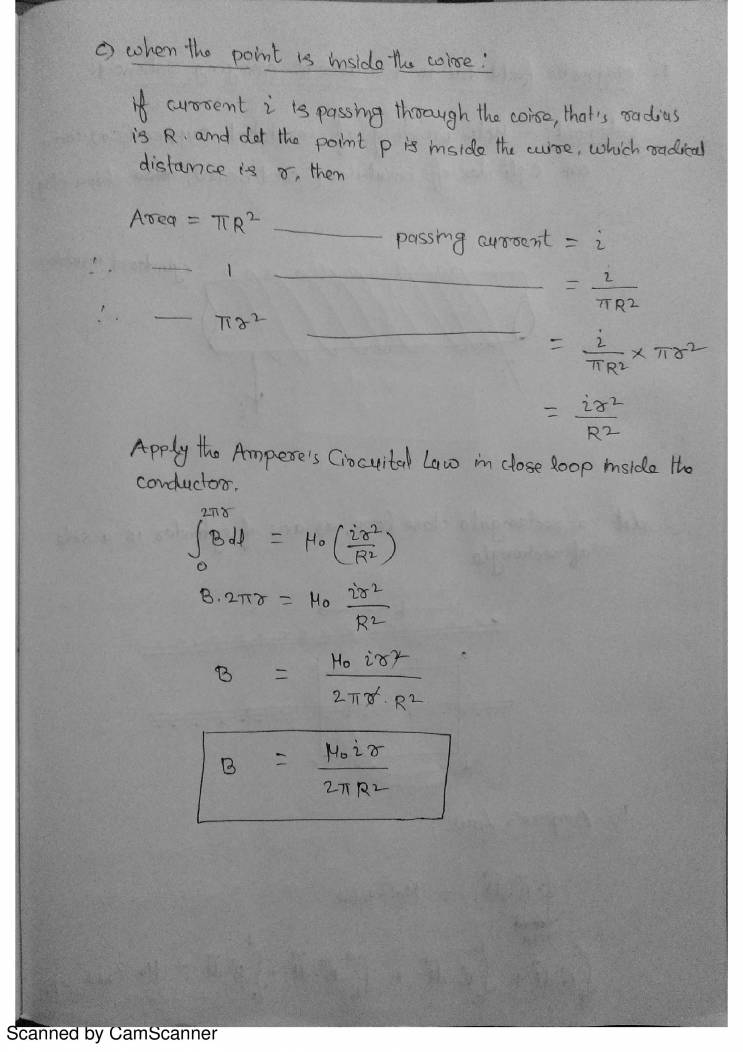 c) when the point is inside the wire:
if current i is passing through the wire, that's radius
is R. and let the point p is inside the wire, which radical
distance is r, then
Area = πR² ——— passing current = i
∴ — 1 ——— = i/πR²
∴ — πr² ——— = i/πR² × πr²
= ir²/R²
Apply the Ampere's Circuital Law in close loop inside the
conductor.
∫₀^2πr Bdl = μ₀ (ir²/R²)
B. 2πr = μ₀ ir²/R²
B = μ₀ ir²/2πr. R²
B = μ₀ir/2πR²
Scanned by CamScanner